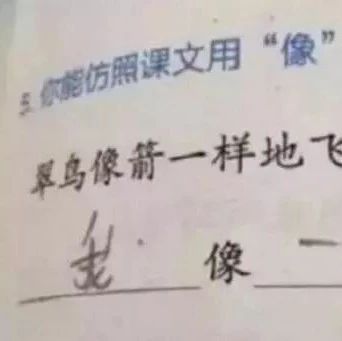 5. 你能仿照课文用“像”
翠鸟像箭一样地飞
像 一